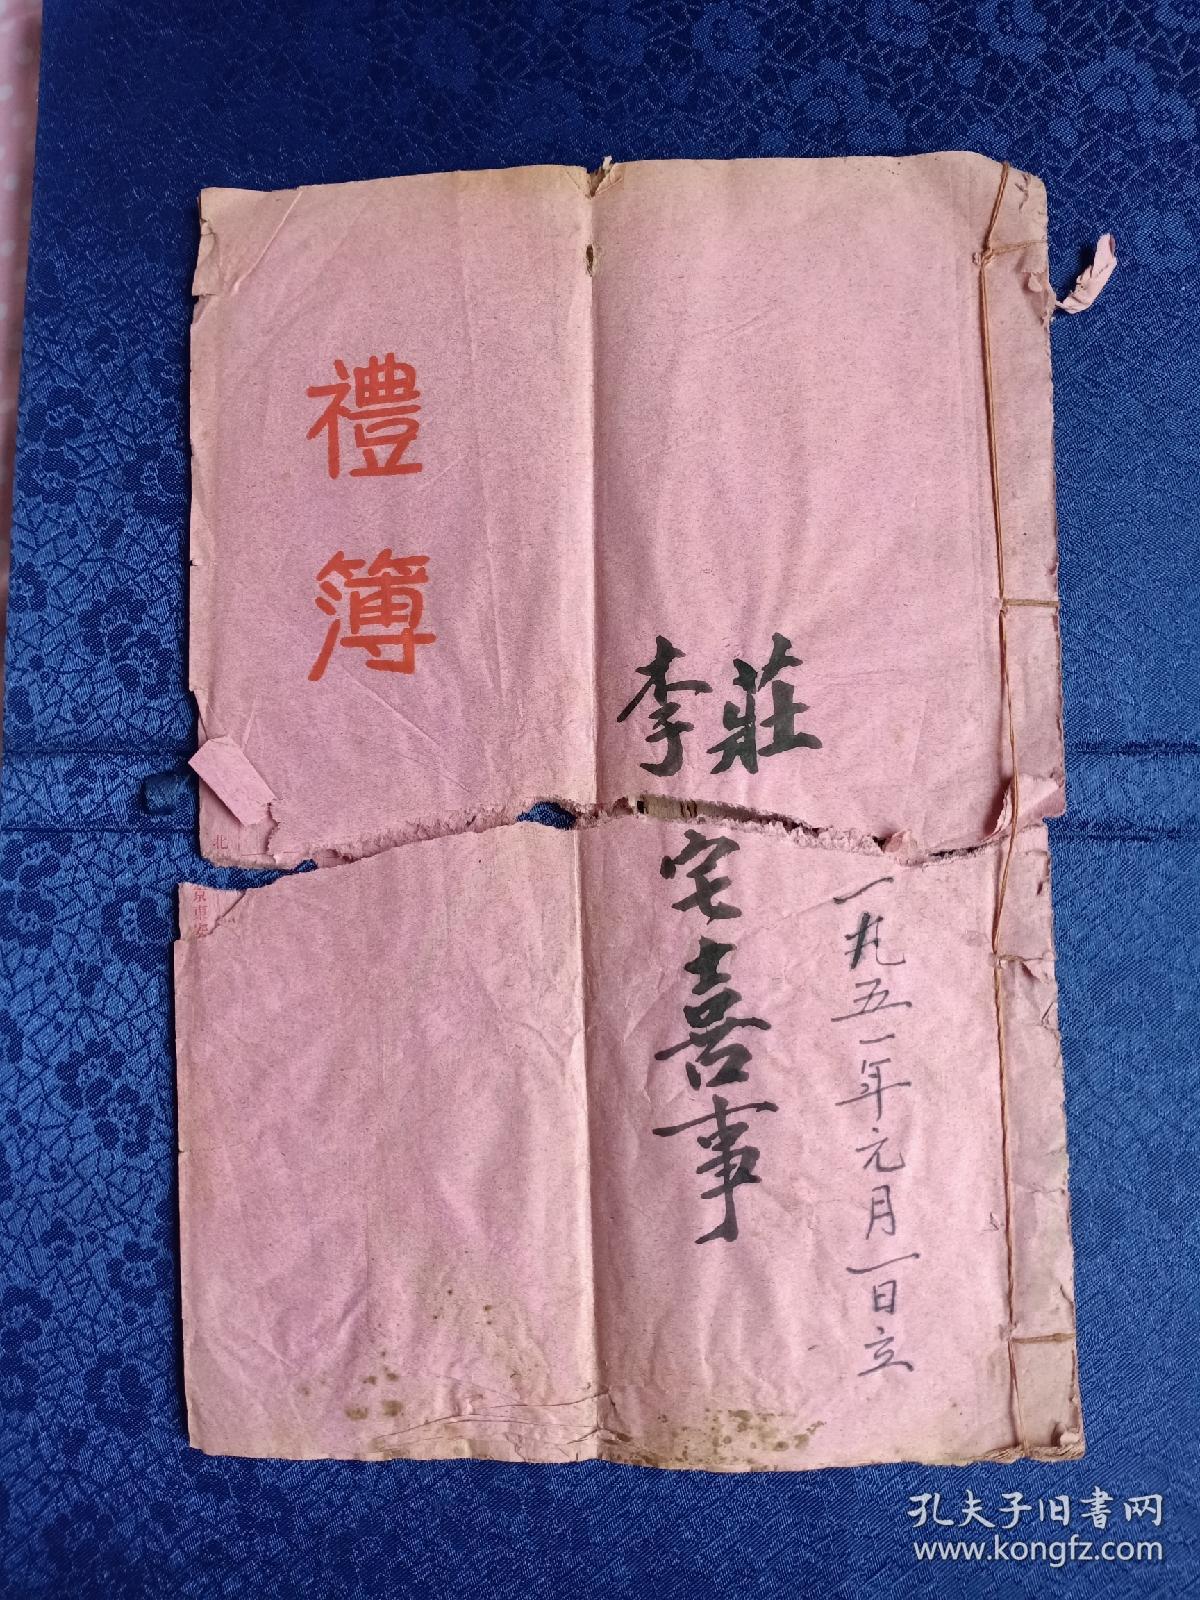 禮簿
莊李宅喜事
一九五一年元月一日立
北京東安
孔夫子旧書网
www.kongfz.com